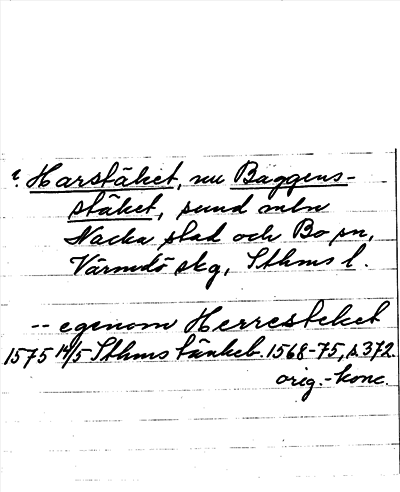 ? Harstäket, nu Baggens-
stäket, sund mln
Nacka stad och Bo sn,
Värmdö skg, Sthms l.
-- egenom Herresteket
1575 14/5 Sthms tänkeb. 1568-75, s. 372.
orig.-konc.